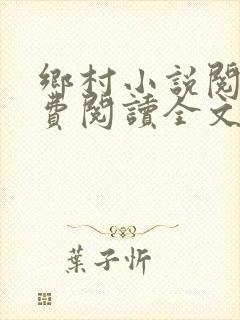 鄉村小説閱
費閱讀全文
葉子忻